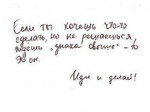 Если ты хочешь что-то
сделать, но не решаешься,
ждёшь "знака свыше" - то
это он.
Иди и делай!